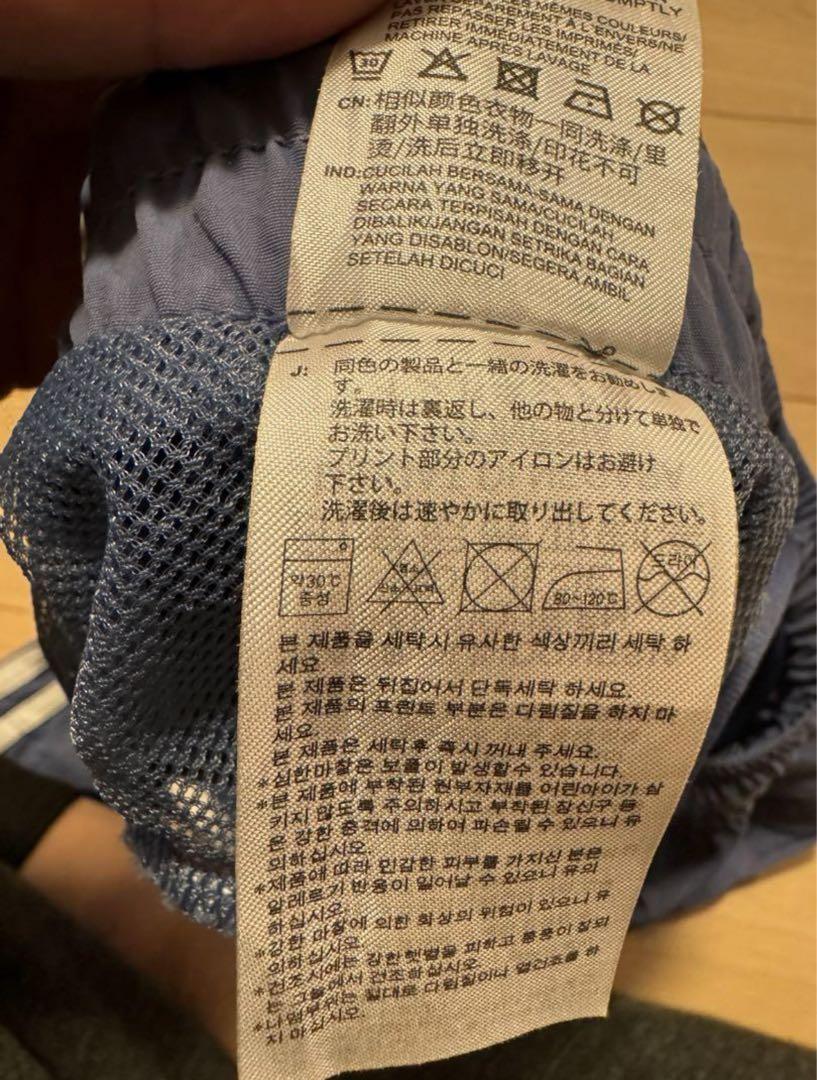 OMPTLY
LES MÊMES COULEURS/
SÉPARÉMENT À L'ENVERS/NE
PAS REPASSER LES IMPRIMÉS/
RETIRER IMMÉDIATEMENT DE LA
MACHINE APRÈS LAVAGE
30
CN: 相似颜色衣物一同洗涤/里
翻外单独洗涤/印花不可
烫/洗后立即移开
IND:CUCILAH BERSAMA-SAMA DENGAN
WARNA YANG SAMA/CUCILAH
SECARA TERPISAH DENGAN CARA
DIBALIK/JANGAN SETRIKA BAGIAN
YANG DISABLON/SEGERA AMBIL
SETELAH DICUCI
J: 同色の製品と一緒の洗濯をお勧めしま
す。
洗濯時は裏返し、他の物と分けて単独で
お洗い下さい。
プリント部分のアイロンはお避け
下さい。
洗濯後は速やかに取り出してください。
약30℃
중성
염소
산소표백
80~120℃
드라이
본 제품을 세탁시 유사한 색상끼리 세탁 하
세요.
본 제품은 뒤집어서 단독세탁 하세요.
본 제품의 프린트 부분은 다림질을 하지 마
세요.
본 제품은 세탁후 즉시 꺼내 주세요.
*심한마찰은 보풀이 발생할수 있습니다.
*본 제품에 부착된 원부자재를 어린아이가 삼
키지 않도록 주의하시고 부착된 장신구 등
은 강한 충격에 의하여 파손될 수 있으니 유
의하십시오.
*제품에 따라 민감한 피부를 가지신 분은
알레르기 반응이 일어날 수 있으니 유의
하십시오.
*강한 마찰에 의한 화상의 위험이 있으니 유
의하십시오.
*건조시에는 강한햇볕을 피하고 통풍이 잘되
는 그늘에서 건조하십시오.
*나염부위는 절대로 다림질이나 열건조를 하
지 마십시오.